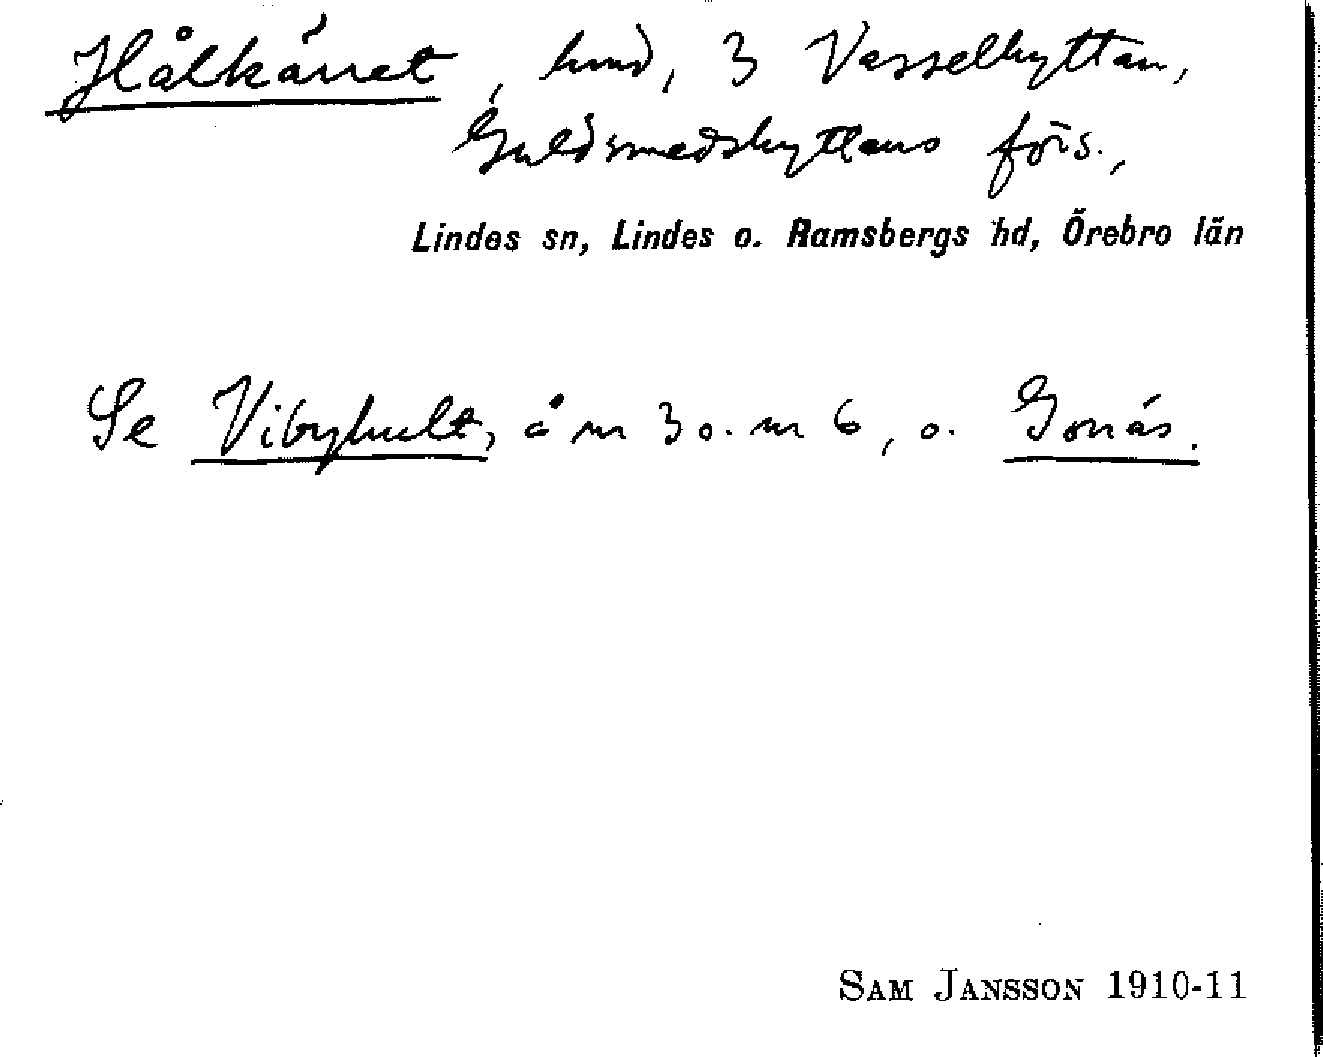 Hålkärret, lund, 3 Vasselhyttan,
Guldsmedshyttans förs.,
Lindes sn, Lindes o. Ramsbergs hd, Örebro län
Se Vibyhult, å nr 3 o. nr 6, o. Gonäs.
SAM JANSSON 1910-11